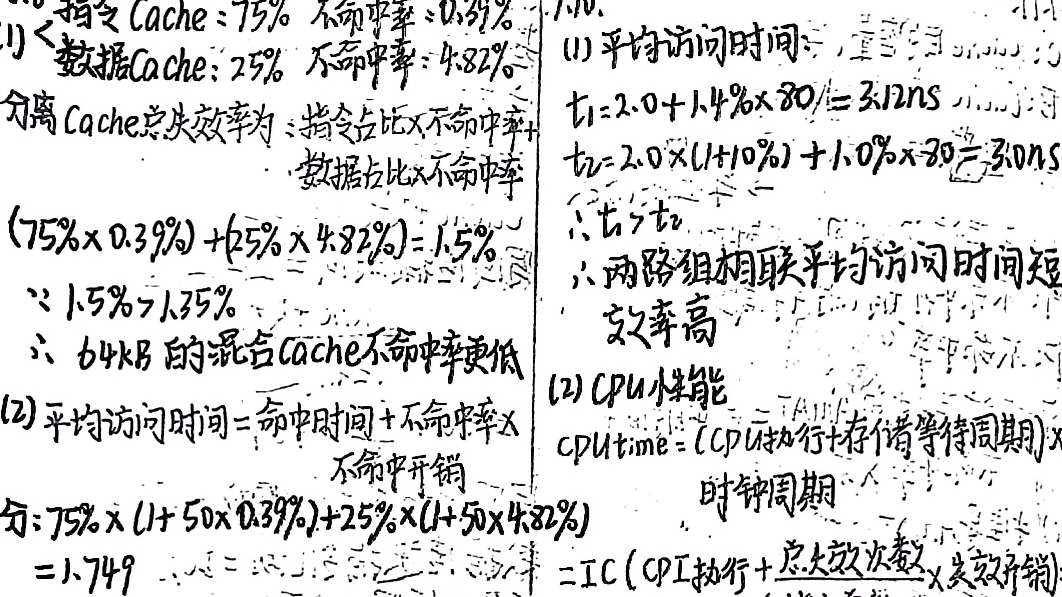 指令Cache:75% 不命中率:0.39%
(1) <
数据Cache:25% 不命中率:4.82%
分离Cache总失效率为:指令占比×不命中率+
数据占比×不命中率
(75%×0.39%)+(25%×4.82%)=1.5%
∵ 1.5%>1.35%
∴ 64kB 的混合Cache不命中率更低
(2) 平均访问时间=命中时间+不命中率×
不命中开销
分:75%×(1+50×0.39%)+25%×(1+50×4.82%)
=1.749
7.10.
(1) 平均访问时间:
t₁=2.0+1.4%×80=3.12ns
t₂=2.0×(1+10%)+1.0%×80=3.0ns
∴ t₁>t₂
∴ 两路组相联平均访问时间短
效率高
(2) CPU性能
CPUtime=(CPU执行+存储等待周期)×
时钟周期
=IC(CPI执行+总失效次数×失效开销)